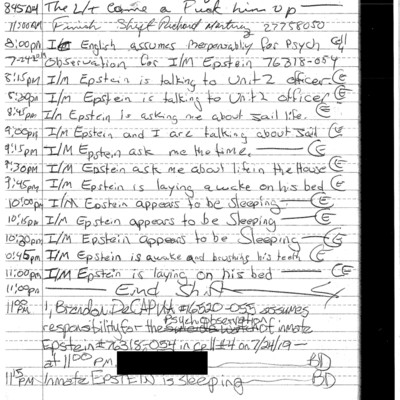 895704 The L/t came a Pick him up
11:00AM Finish Shift Richard 27758050
8:00pm I/C English assumes Responsablity for Psych
7-24-2019 observation for I/M Epstein 76318-054
8:15pm I/M Epstein is talking to Unit 2 officer CE
8:30pm I/M Epstein is talking to Unit 2 officer CE
8:45pm I/m Epstein is asking me about Jail life. CE
9:00pm I/M Epstein and I are talking about Jail CE
9:15pm I/M Epstein ask me the time. CE
9:30pm I/M Epstein ask me about life in the House CE
9:45pm I/M Epstein is laying awake on his bed CE
10:00pm I/M Epstein appears to be sleeping CE
10:15pm I/M Epstein appears to be Sleeping CE
10:30pm I/M Epstein appears to be Sleeping CE
10:45pm I/M Epstein is awake and brushing his teeth CE
11:00pm I/M Epstein is laying on his bed CE
11:00pm End Shift
11:00 PM I, Brandon DeCAPUA #16520-055 assumes
Psych observation
responsibility for the of inmate
Epstein #76318-054 in cell #4 on 7/24/19
at 11:00 PM BD
11:15 PM Inmate EPSTEIN is sleeping BD